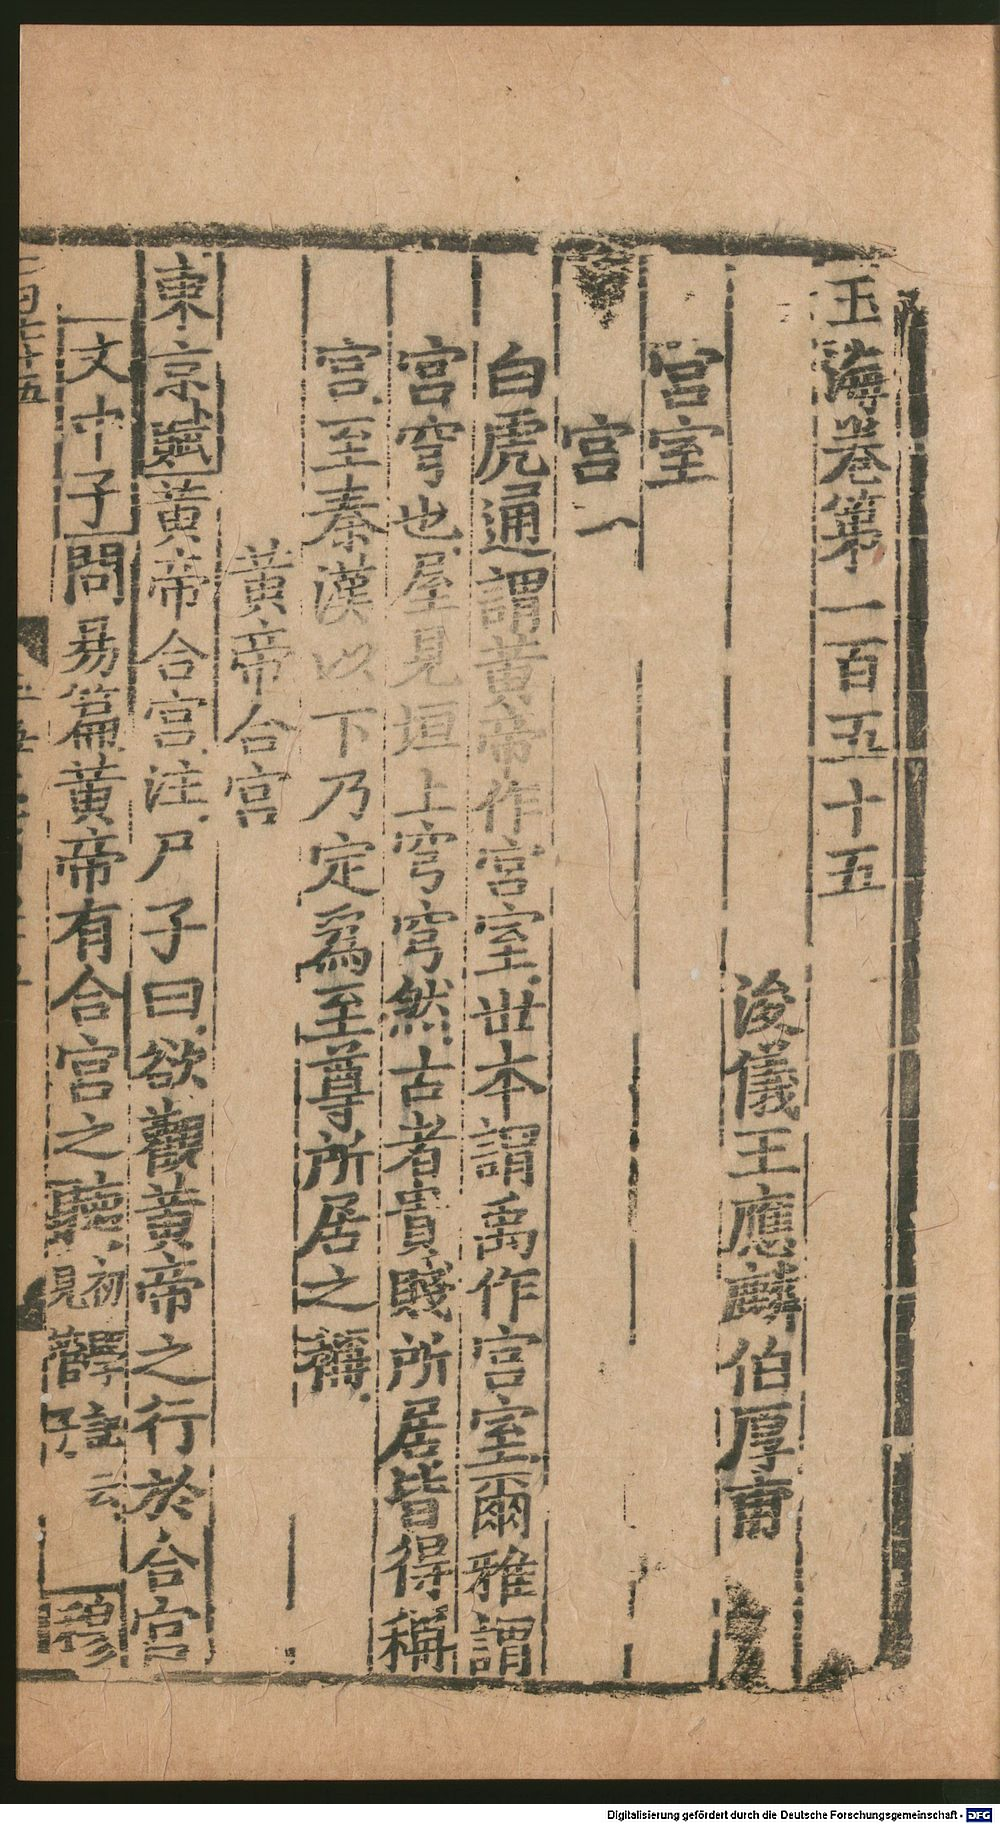 玉海卷第一百五十五
浚儀王應麟伯厚甫
宮室
宮一
白虎通謂黃帝作宮室世本謂禹作宮室爾雅謂
宮穹也屋見垣上穹穹然古者貴賤所居皆得稱
宮至秦漢以下乃定爲至尊所居之稱
黃帝合宮
東京賦黃帝合宮注尸子曰欲觀黃帝之行於合宮
文中子問易篇黃帝有合宮之聽初學記云見管子穆
Digitalisierung gefördert durch die Deutsche Forschungsgemeinschaft - DFG